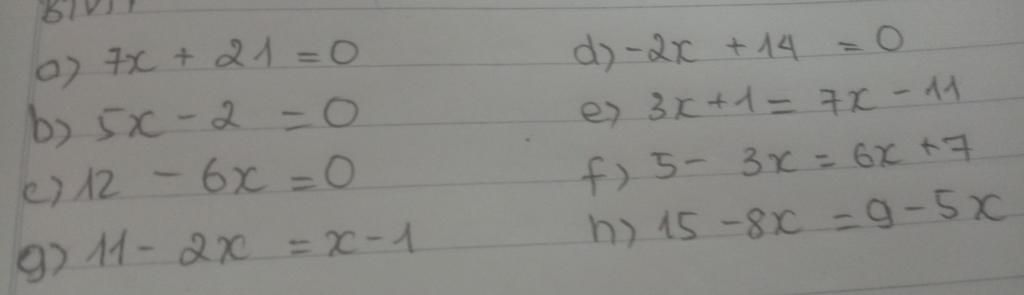 a) 7x + 21 = 0
b) 5x - 2 = 0
c) 12 - 6x = 0
g) 11 - 2x = x - 1
d) -2x + 14 = 0
e) 3x + 1 = 7x - 11
f) 5 - 3x = 6x + 7
h) 15 - 8x = 9 - 5x